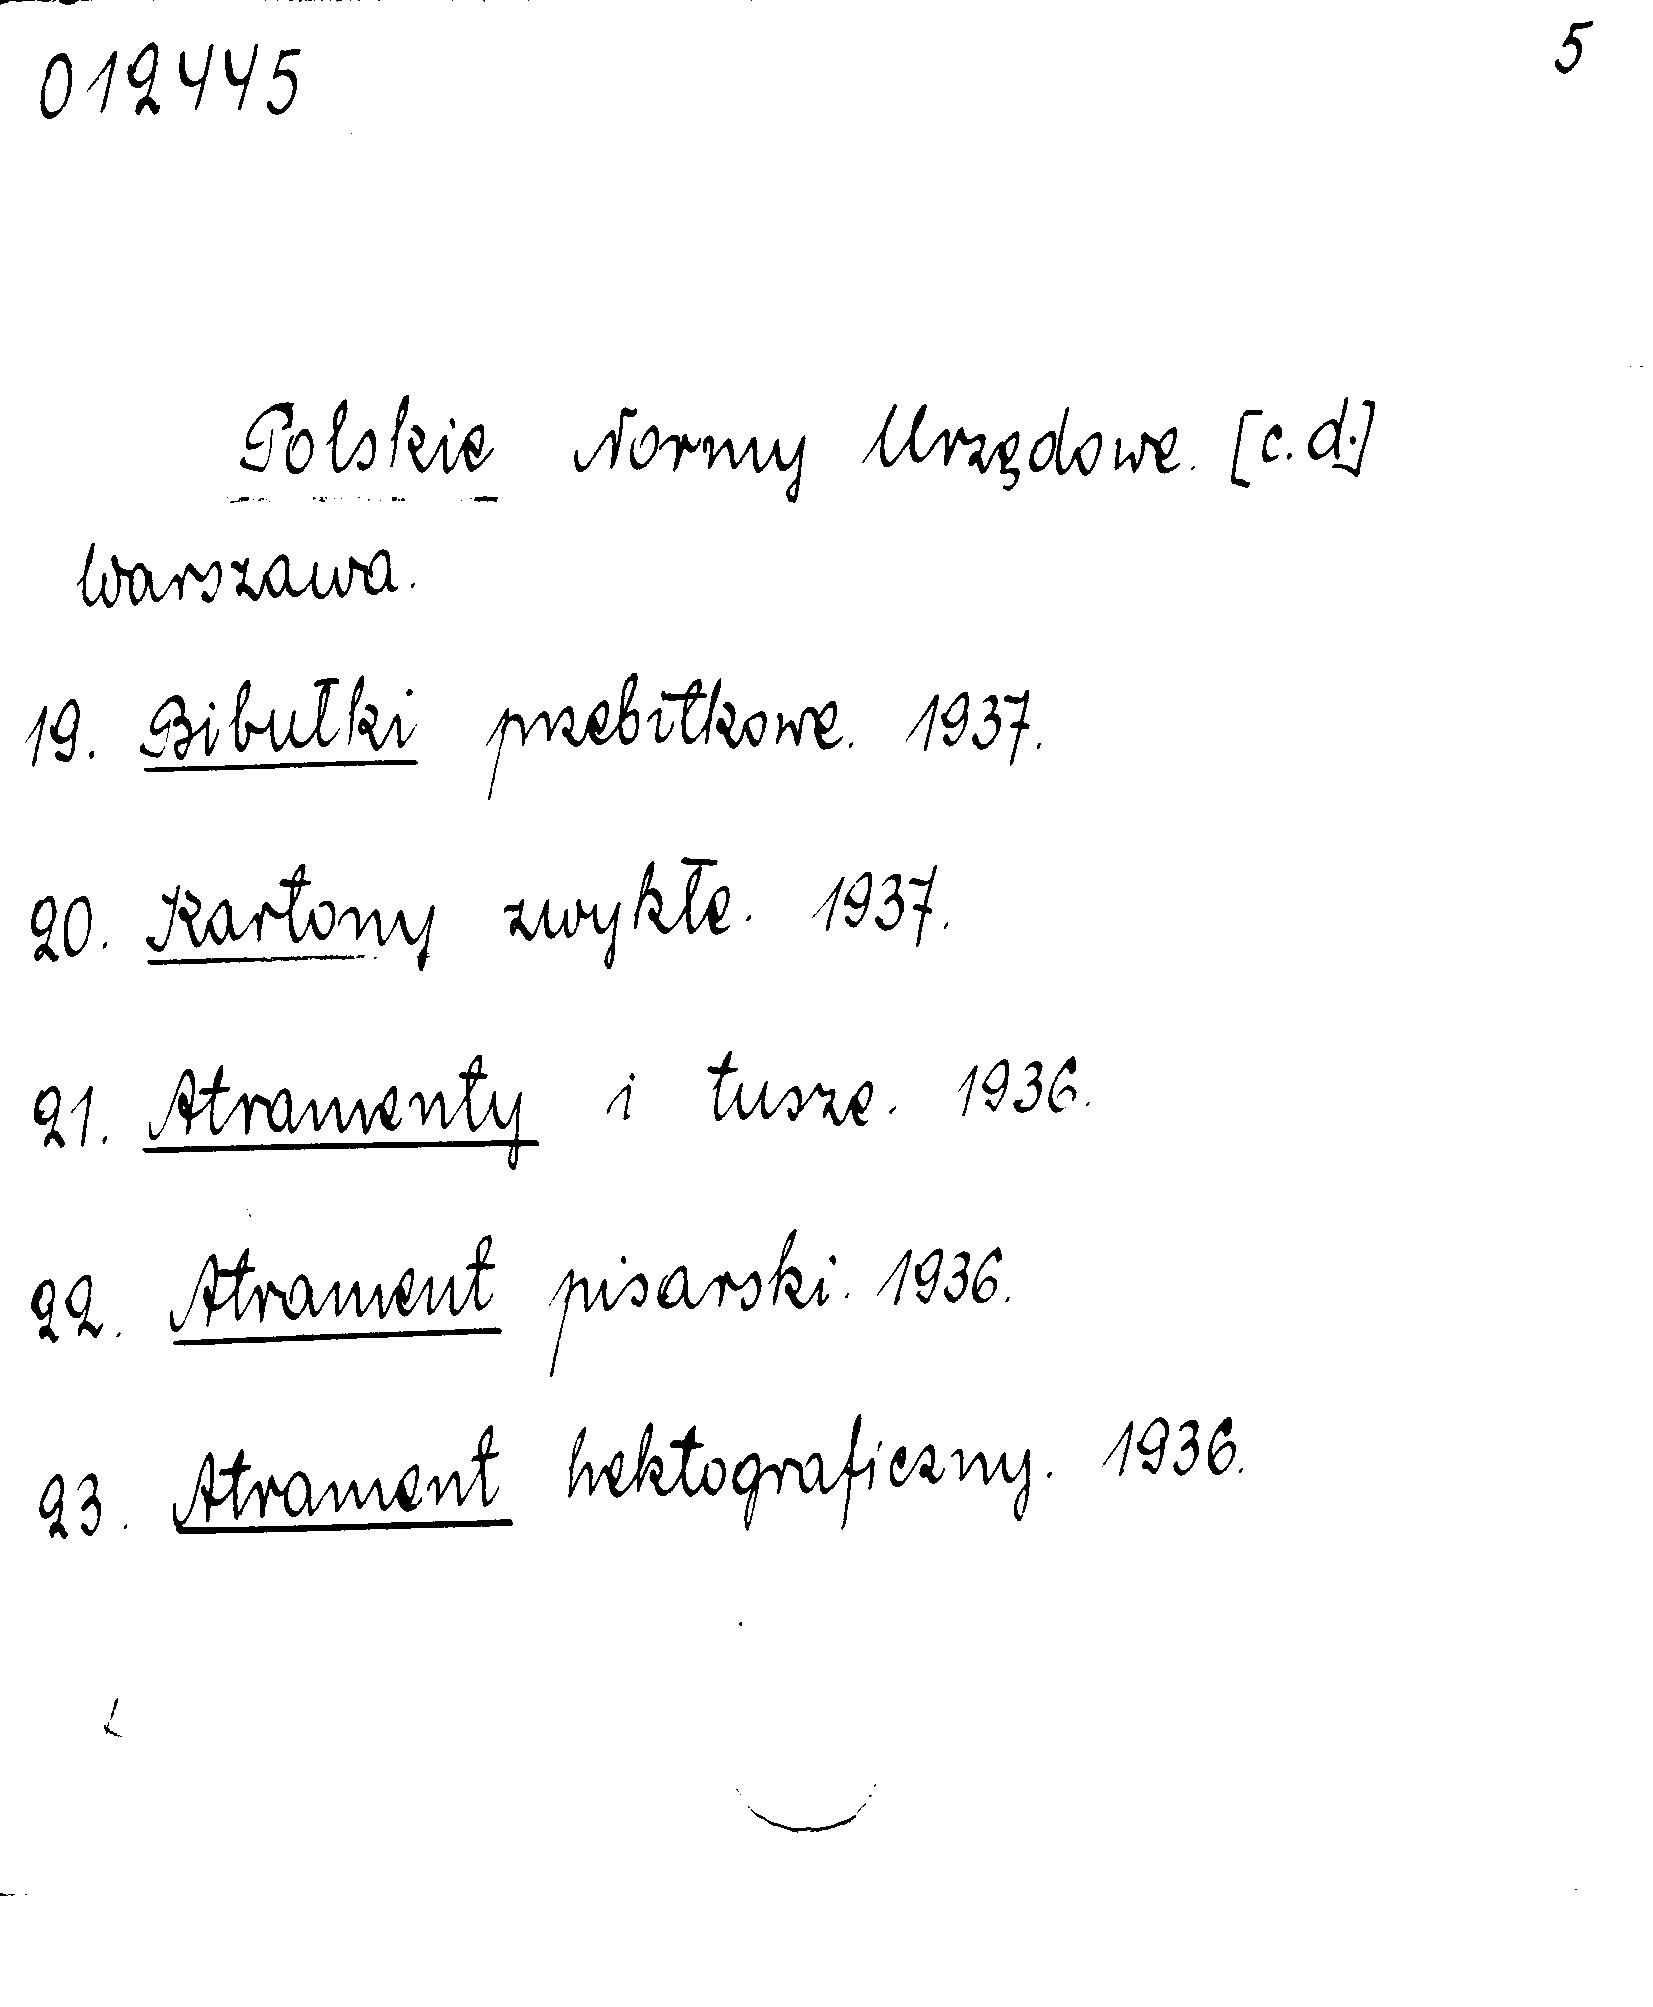 012445
5
Polskie Normy Urzędowe. [c.d.]
Warszawa.
19. Bibułki przebitkowe. 1937.
20. Kartony zwykłe. 1937.
21. Atramenty i tusze. 1936.
22. Atrament pisarski. 1936.
23. Atrament hektograficzny. 1936.